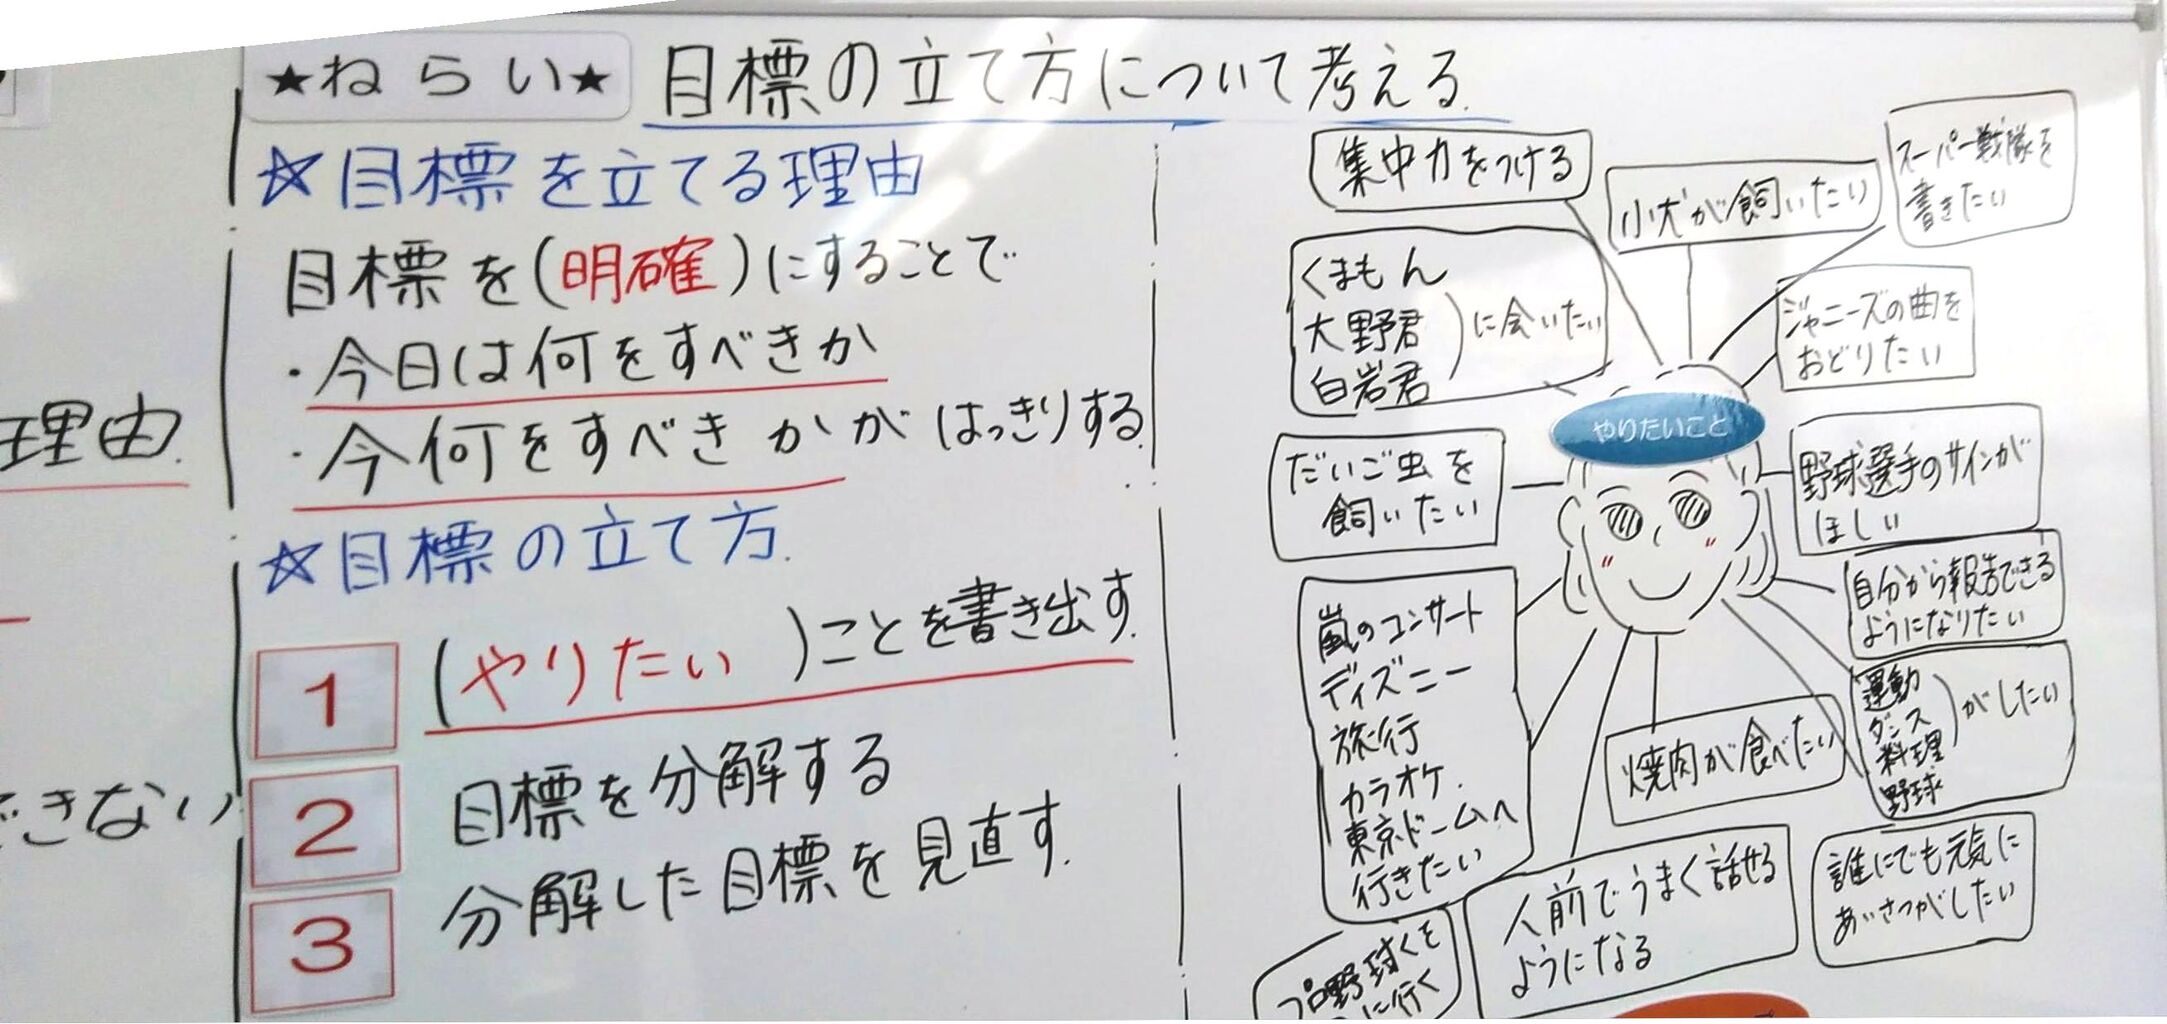 ★ねらい★ 目標の立て方について考える
☆目標を立てる理由
目標を(明確)にすることで
・今日は何をすべきか
・今何をすべきかがはっきりする
☆目標の立て方
1 (やりたい)ことを書き出す
2 目標を分解する
3 分解した目標を見直す
理由
できない
集中力をつける
小犬が飼いたい
スーパー戦隊を
書きたい
くまもん
大野君
白岩君
に会いたい
ジャニーズの曲を
おどりたい
やりたいこと
だいご虫を
飼いたい
野球選手のサインが
ほしい
嵐のコンサート
ディズニー
旅行
カラオケ
東京ドームへ
行きたい
自分から報告できる
ようになりたい
運動
ダンス
料理
野球
がしたい
焼肉が食べたい
人前でうまく話せる
ようになる
誰にでも元気に
あいさつがしたい
プロ野球
に行く